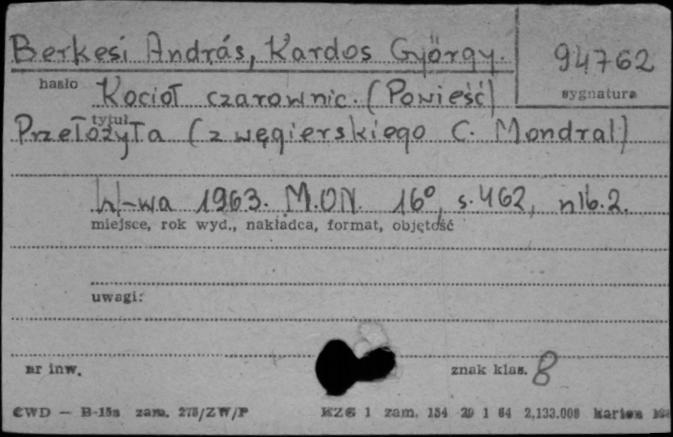 Berkesi András, Kardos György.
94762
hasło Kocioł czarownic. (Powieść)
sygnatura
tytuł
Przełożyła (z węgierskiego C. Mondral)
W-wa 1963. M.O.N. 16°, s. 462, nlb. 2.
miejsce, rok wyd., nakładca, format, objętość
uwagi:
nr inw.
znak klas. 8
CWD — B-15a zam. 278/ZW/P
KZG 1 zam. 154 29 1 64 2.133.000 karton